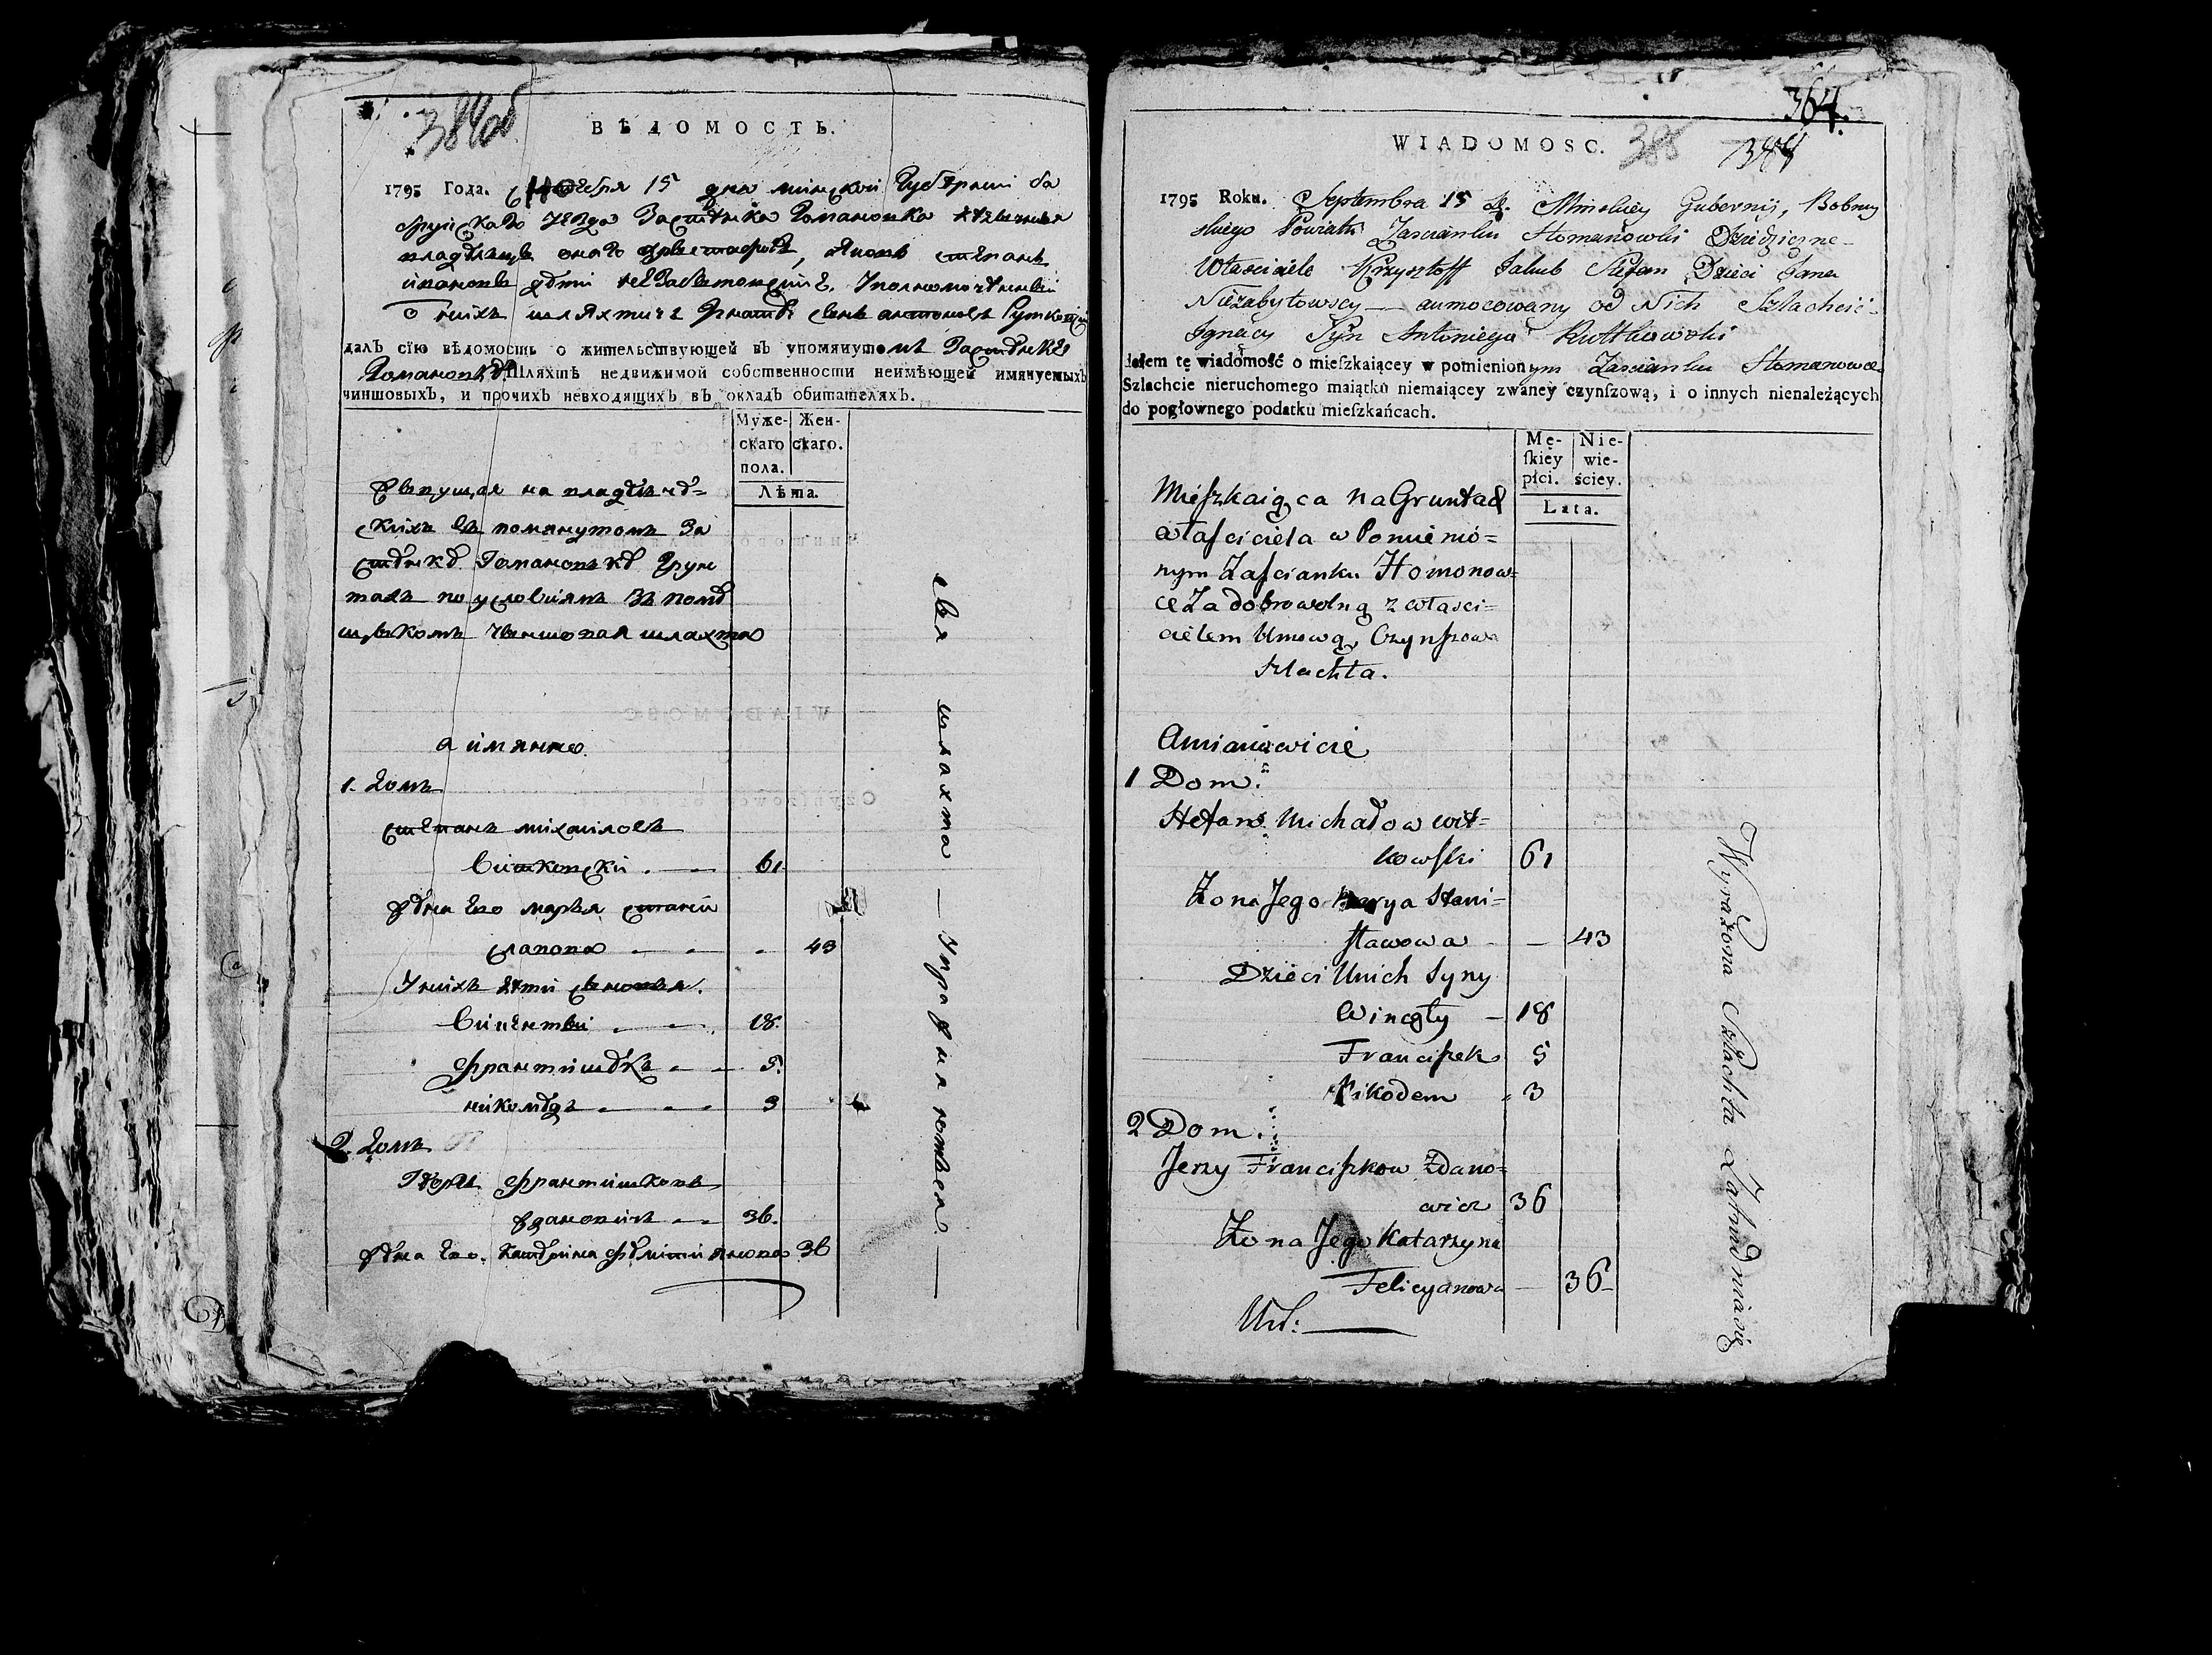 384об
ВѢДОМОСТЬ.
1795 Года. 15 дна минской Губерний бо
бруйскаго уезда Застенка Гомановка
владелцы онаго Якопъ степанъ
ивановы дети незабытовские. Уполномоченный
о нихъ шляхтичъ Игнатей сынъ антоновъ Рутковски
далъ сїю вѣдомость о жительствующей въ упомянутомъ Застенке
Гомановке Шляхтѣ недвижимой собственности неимѣющей имянуемыхъ
чиншовыхъ, и прочихъ невходящихъ въ окладъ обитателяхъ.
Муже- Жен-
скаго скаго.
пола.
Лѣта.
на владелче=
скихъ въ помянутомъ За
стенке Гомановке Грун
тахъ по условиямъ зъ поме
щикомъ чыншовая шляхта
а имянно.
1. Домъ
степанъ михайловъ
Витковски . — 61
жена Его марья стани
славова - - - 43
У нихъ дети сыновья.
Винцентый - - 18.
Франтишекъ - - 5.
никодемъ - - - 3
2. Домъ
Ежи Франтишковъ
ждановичъ - - 36.
жена Его. Катерина 36
сия шляхта — упражняютъся —
364.
WIADOMOSC. 388 388
1795 Roku. Septembra 15 d. Minskiey Gubernij, Bobruy
skiego Powiatu Zascianku Homanowki Dziedziczne
Własciciele Krzysztoff Jakub Stefan Dzieci Jana
Niezabytowscy — aumocowany od Nich Szlachcic
Ignacy Syn Antoniego Ruttkowski
dałem tę wiadomość o mieſzkaiącey w pomienionym Zascianku Homanowce
Szlachcie nieruchomego maiątku niemaiącey zwaney czynſzową, i o innych nienależących
do pogłownego podatku mieſzkańcach.
Mę- Nie-
ſkiey wie-
płci. ściey.
Lata.
Mieszkaiąca na Gruntach
własciciela w Pomienio=
nym Zascianku Homonow=
ce Za dobrowolną z własci=
cielem Umową, Czynszowa
szlachta.
Amianowicie
1 Dom.
Stefan Michałow wit=
kowski 61
Zona Jego Marya Stani=
sławowa - — 43
Dzieci Unich Syny
Wincęty — 18
Franciszek 5
Nikodem - 3
2 Dom.
Jerzy Franciszkow Zdano=
wicz 36
Zona Jego Katarzyna
Felicyanowa — 36
Wyrażona Szlachta Zatrudnia się